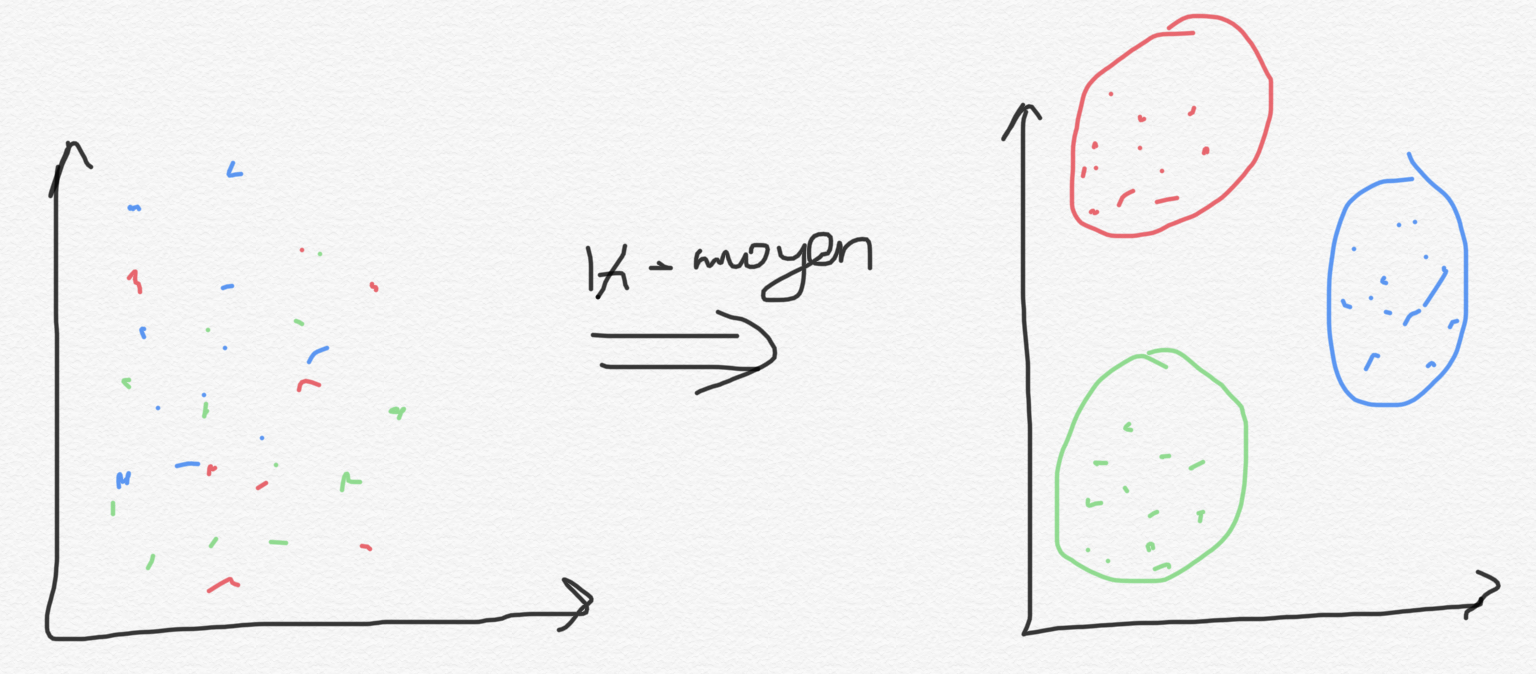 K - moyen